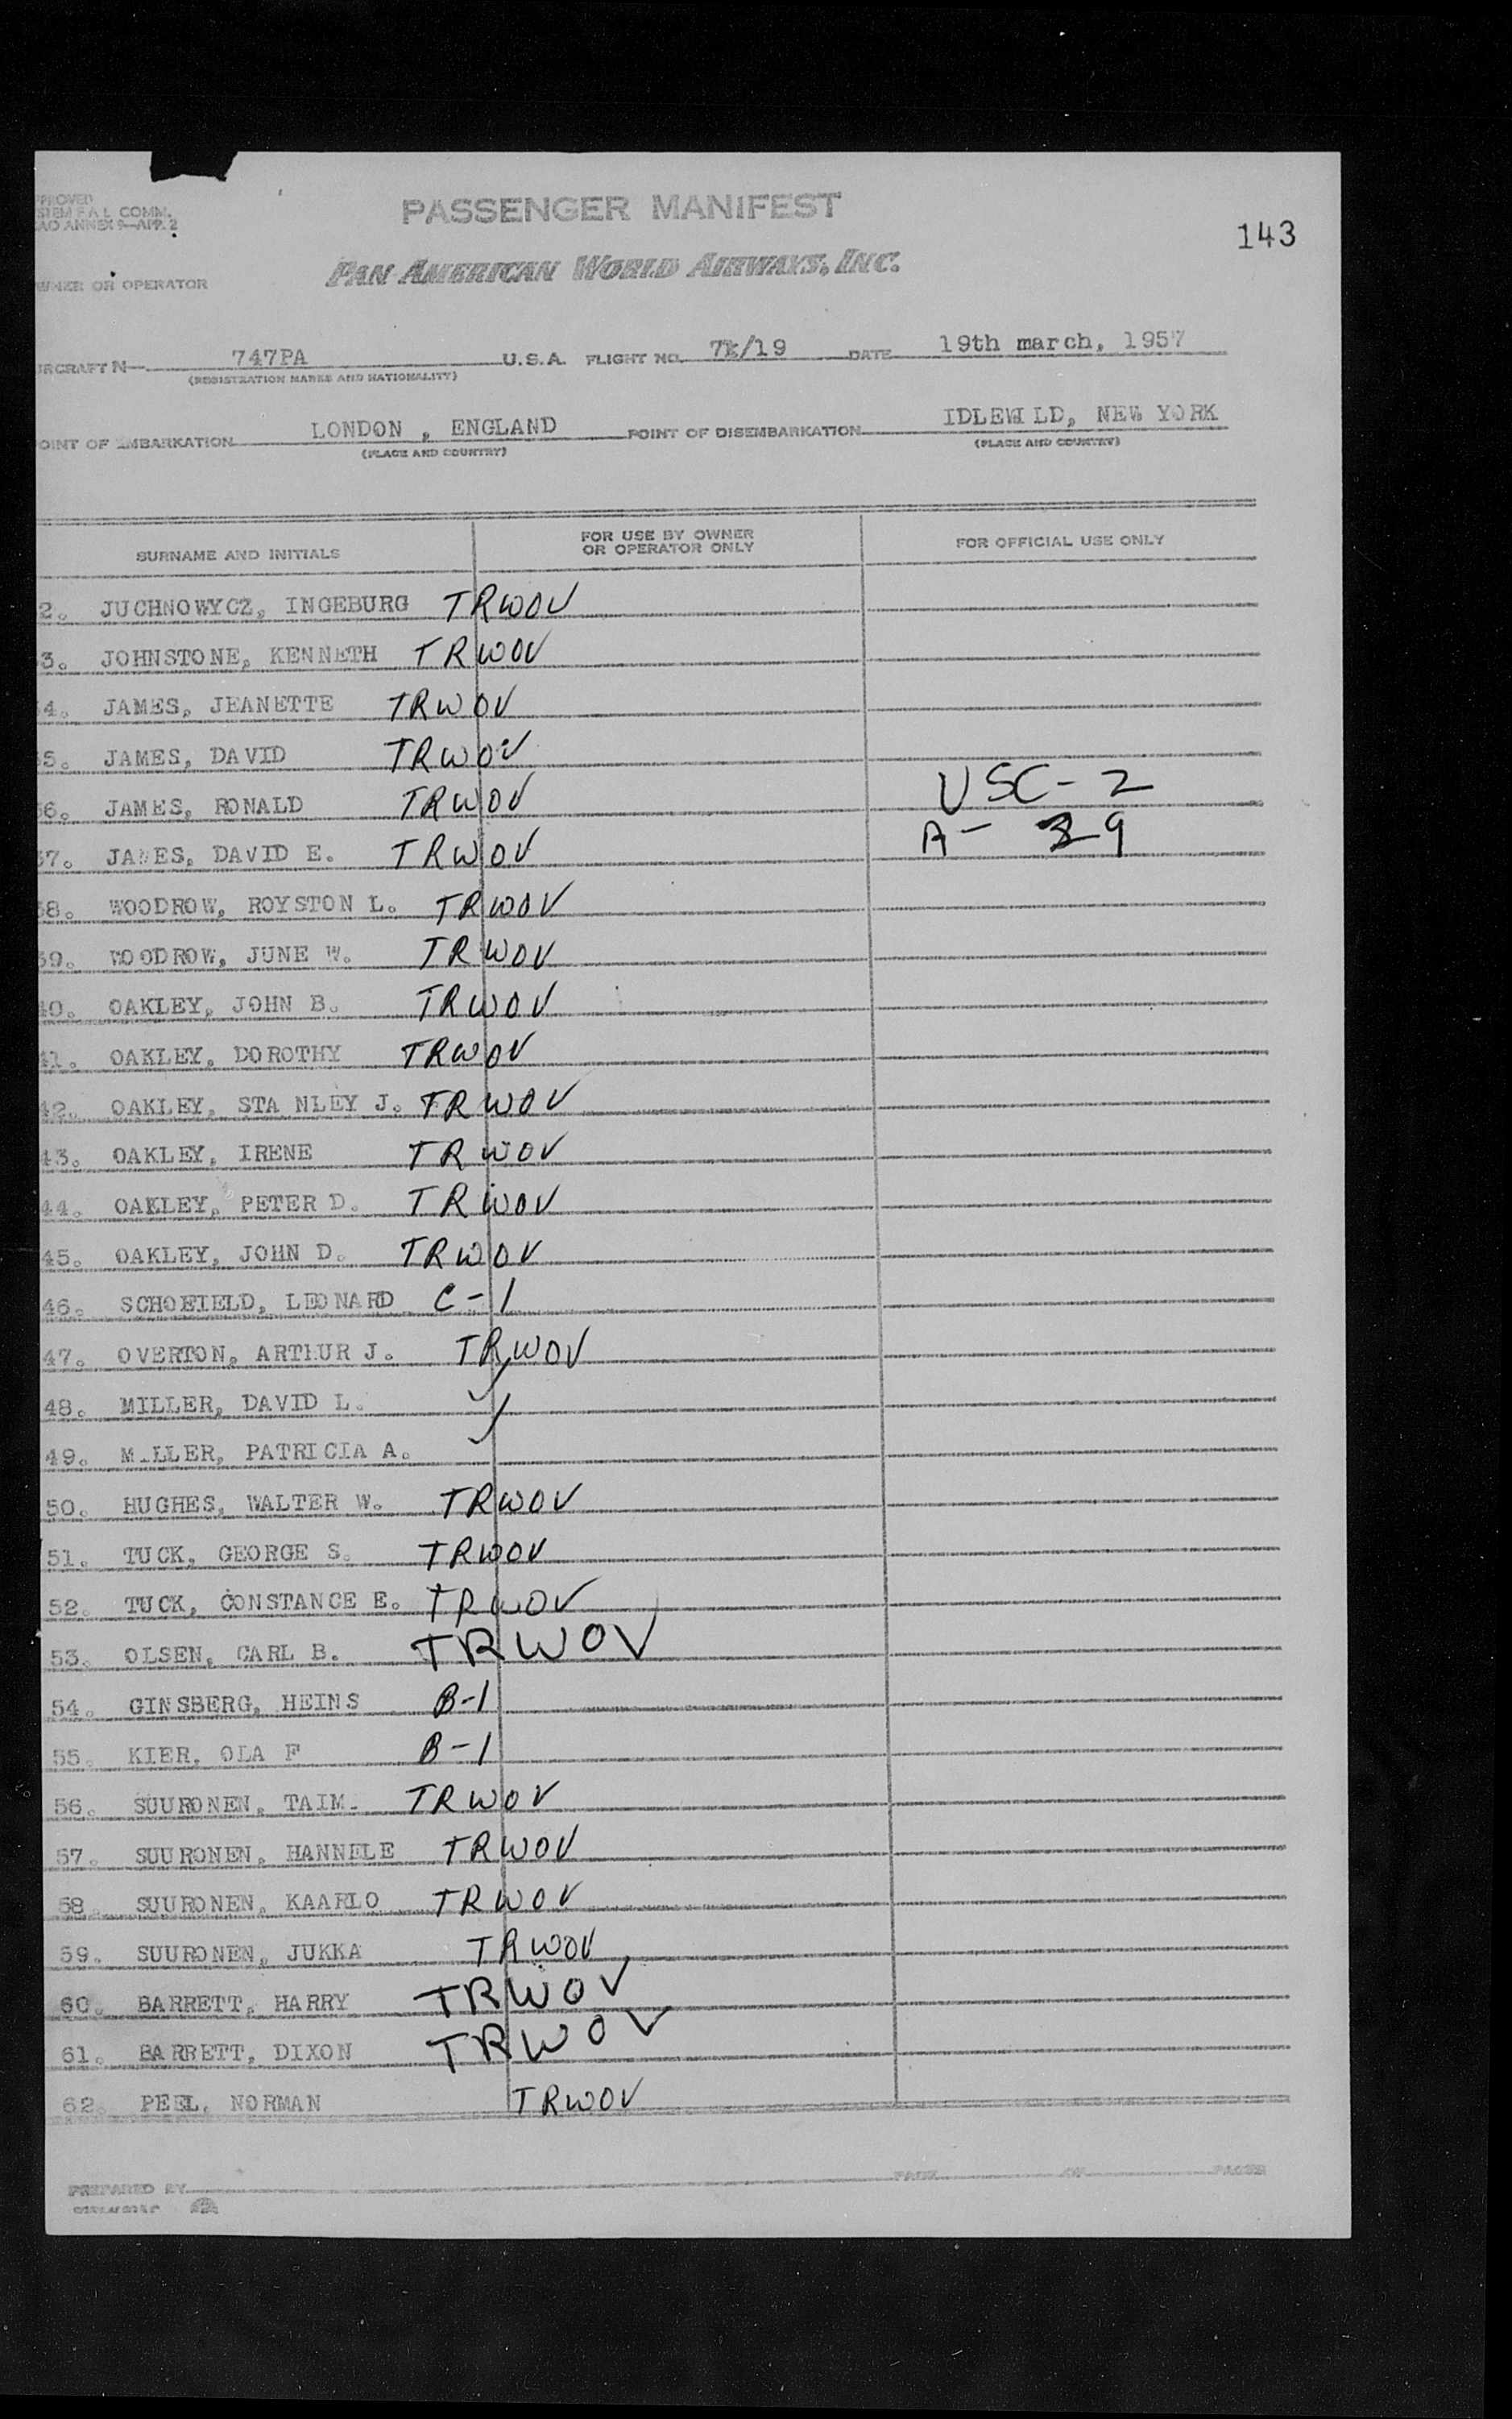 PROVED
STEM F.A.L. COMM.
ICAO ANNEX 9—APP. 2
PASSENGER MANIFEST
143
PAN AMERICAN WORLD AIRWAYS, INC.
WNER OR OPERATOR
IRCRAFT N— 747PA U.S.A. FLIGHT NO. /19 DATE 19th march, 1957
(REGISTRATION MARKS AND NATIONALITY)
OINT OF EMBARKATION LONDON , ENGLAND POINT OF DISEMBARKATION IDLEWILD, NEW YORK
(PLACE AND COUNTRY) (PLACE AND COUNTRY)
SURNAME AND INITIALS FOR USE BY OWNER OR OPERATOR ONLY FOR OFFICIAL USE ONLY
2. JUCHNOWYCZ, INGEBURG TRWOV
3. JOHNSTONE, KENNETH TRWOV
4. JAMES, JEANETTE TRWOV
5. JAMES, DAVID TRWOV
USC-2
6. JAMES, RONALD TRWOV
A- 29
37. JAMES, DAVID E. TRWOV
38. WOODROW, ROYSTON L. TRWOV
39. WOODROW, JUNE W. TRWOV
40. OAKLEY, JOHN B. TRWOV
41. OAKLEY, DOROTHY TRWOV
42. OAKLEY, STA NLEY J. TRWOV
43. OAKLEY, IRENE TRWOV
44. OAKLEY, PETER D. TRWOV
45. OAKLEY, JOHN D. TRWOV
46. SCHOFIELD, LEONARD C-1
47. OVERTON, ARTHUR J. TRWOV
48. MILLER, DAVID L.
49. MILLER, PATRICIA A.
50. HUGHES, WALTER W. TRWOV
51. TUCK, GEORGE S. TRWOV
52. TUCK, CONSTANCE E. TRWOV
53. OLSEN, CARL B. TRWOV
54. GINSBERG, HEINS B-1
55. KIER, OLA F B-1
56. SUURONEN, TAIM. TRWOV
57. SUURONEN, HANNELE TRWOV
58. SUURONEN, KAARLO TRWOV
59. SUURONEN, JUKKA TRWOV
60. BARRETT, HARRY TRWOV
61. BARRETT, DIXON TRWOV
62. PEEL, NORMAN TRWOV
PREPARED BY PAGE OF PAGES